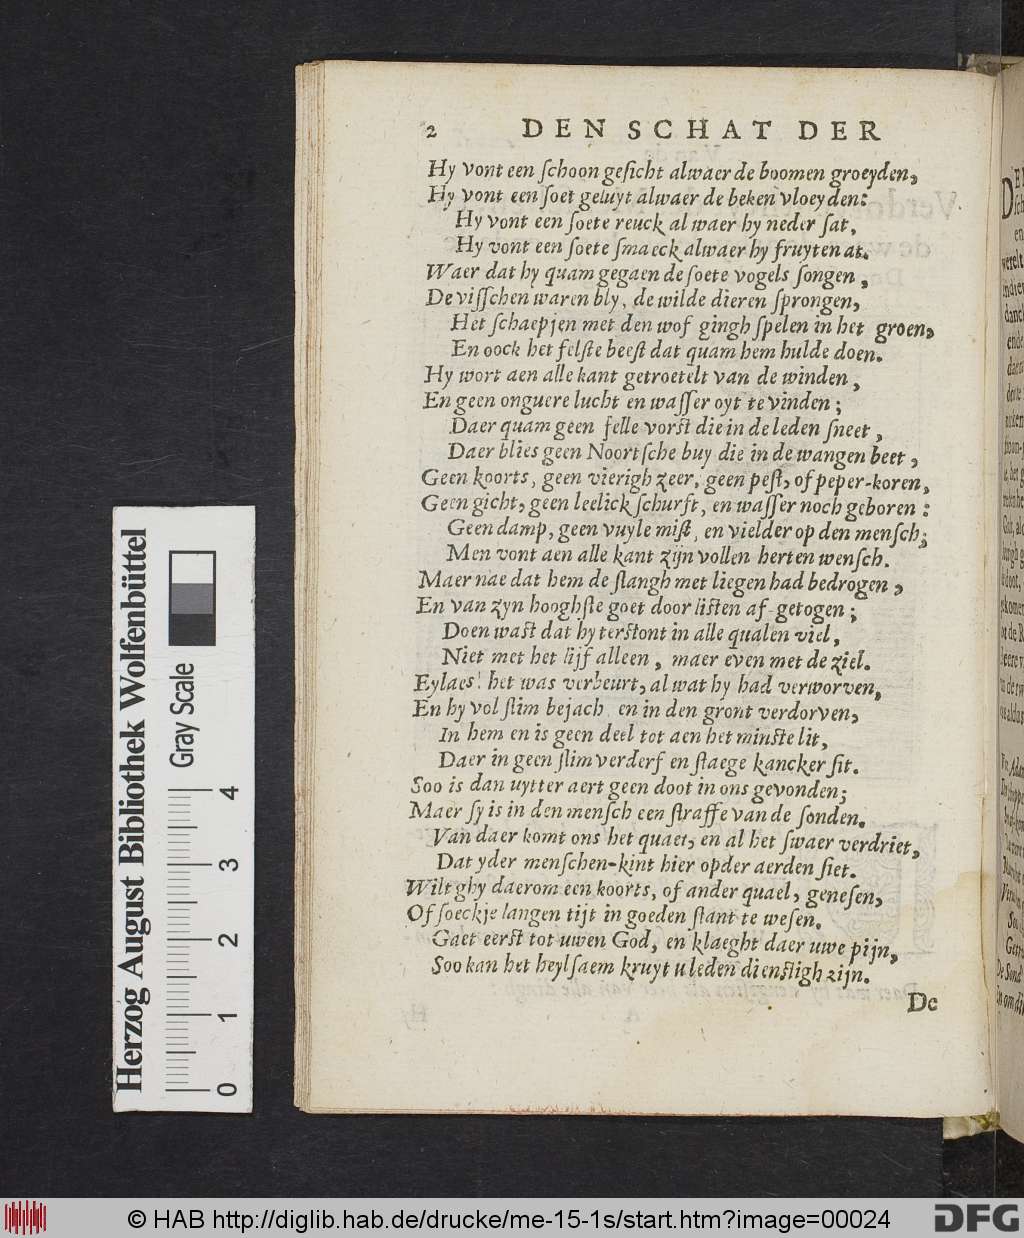 2 DEN SCHAT DER
Hy vont een ſchoon geſicht alwaer de boomen groeyden,
Hy vont een ſoet geluyt alwaer de beken vloeyden:
Hy vont een ſoete reuck al waer hy neder ſat,
Hy vont een ſoete ſmaeck alwaer hy fruyten at.
Waer dat hy quam gegaen de ſoete vogels ſongen,
De viſſchen waren bly, de wilde dieren ſprongen,
Het ſchaepjen met den wof gingh ſpelen in het groen,
En oock het felſte beeſt dat quam hem hulde doen.
Hy wort aen alle kant getroetelt van de winden,
En geen onguere lucht en waſſer oyt te vinden;
Daer quam geen felle vorſt die in de leden ſneet,
Daer blies geen Noortſche buy die in de wangen beet,
Geen koorts, geen vierigh zeer, geen peſt, of peper-koren,
Geen gicht, geen leelick ſchurft, en waſſer noch geboren:
Geen damp, geen vuyle miſt, en vielder op den menſch;
Men vont aen alle kant zijn vollen herten wenſch.
Maer nae dat hem de ſlangh met liegen had bedrogen,
En van zyn hooghſte goet door liſten af-getogen;
Doen waſt dat hy terſtont in alle qualen viel,
Niet met het lijf alleen, maer even met de ziel.
Eylaes! het was verbeurt, al wat hy had verworven,
En hy vol ſlim bejach en in den gront verdorven,
In hem en is geen deel tot aen het minſte lit,
Daer in geen ſlim verderf en ſtaege kancker ſit.
Soo is dan uytter aert geen doot in ons gevonden;
Maer ſy is in den menſch een ſtraffe van de ſonden.
Van daer komt ons het quaet, en al het ſwaer verdriet,
Dat yder menſchen-kint hier opder aerden ſiet.
Wilt ghy daerom een koorts, of ander quael, geneſen,
Of ſoeckje langen tijt in goeden ſtant te weſen.
Gaet eerſt tot uwen God, en klaeght daer uwe pijn,
Soo kan het heylſaem kruyt u leden dienſtigh zijn.
De
Herzog August Bibliothek Wolfenbüttel
Gray Scale
0 1 2 3 4
© HAB http://diglib.hab.de/drucke/me-15-1s/start.htm?image=00024
DFG